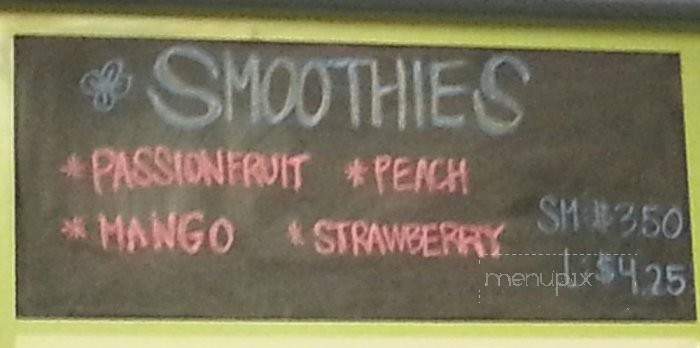 SMOOTHIES
* PASSIONFRUIT * PEACH
* MANGO * STRAWBERRY
SM $3.50
L $4.25
menupix